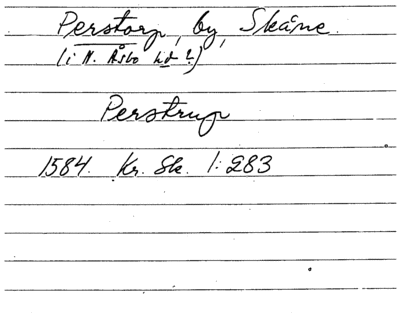 Perstorp, by, Skåne.
(i N. Åsbo hd ?)
Perstrup
1584. Kr. Sk. 1:283